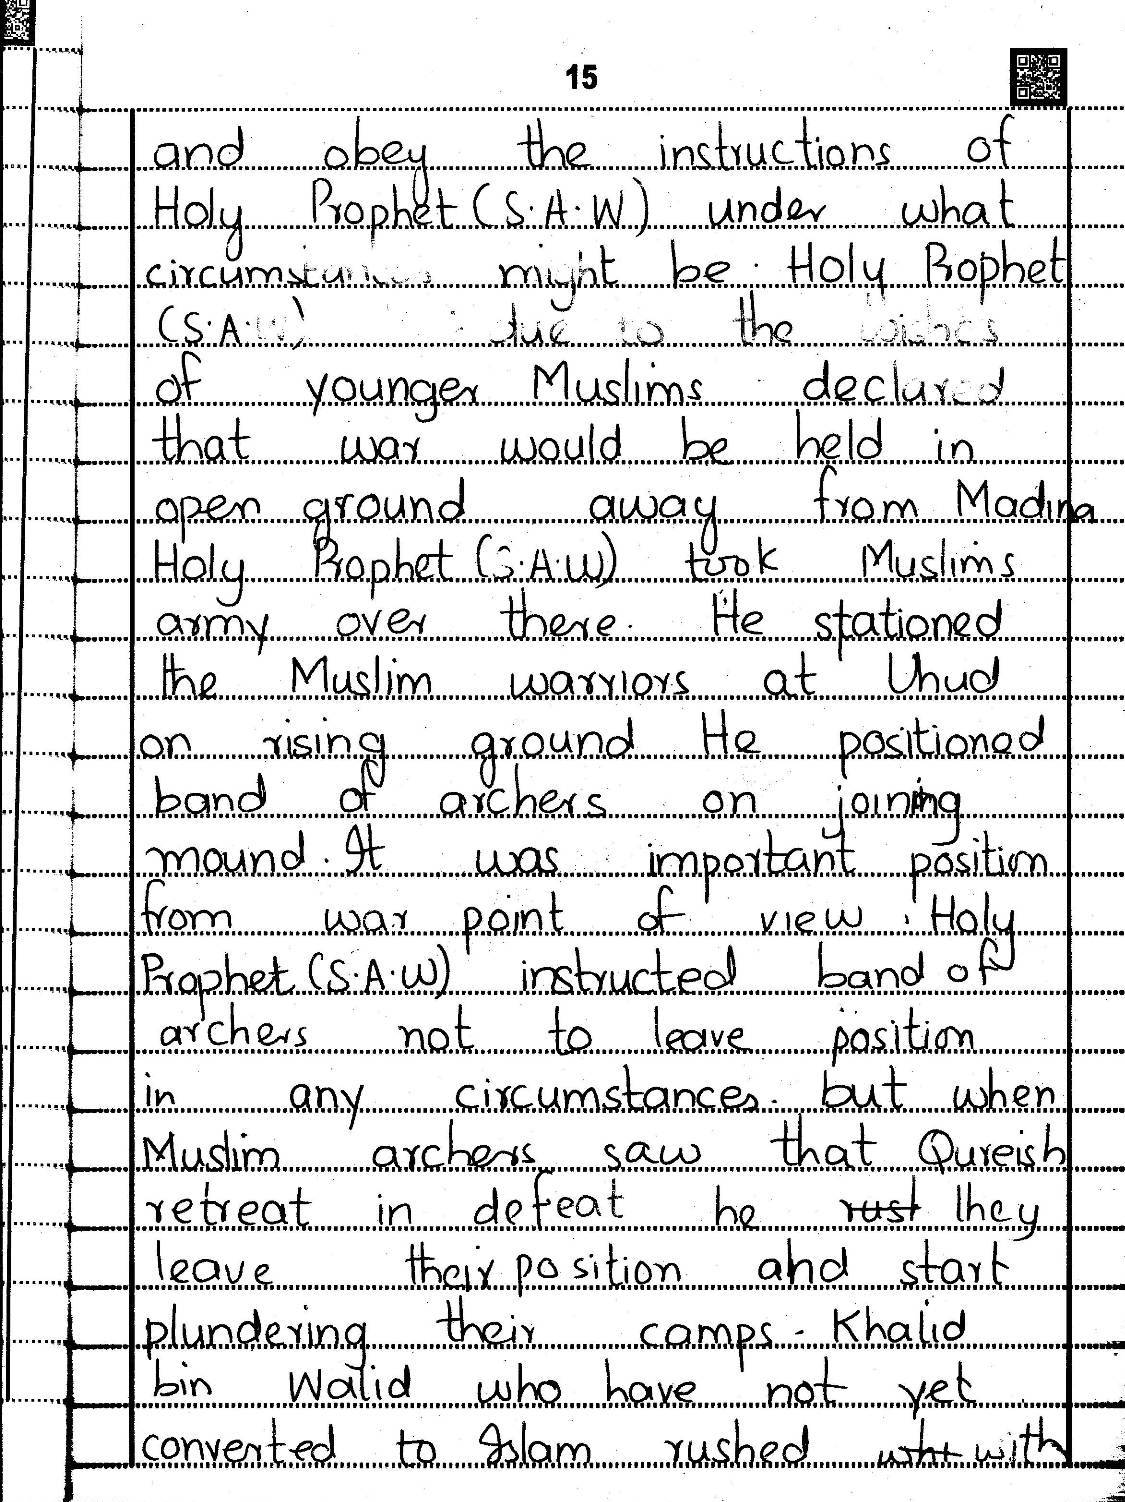 15
and obey the instructions of
Holy Prophet (S.A.W) under what
circumstances might be. Holy Prophet
(S.A.W) due to the wishes
of younger Muslims declared
that war would be held in
open ground away from Madina
Holy Prophet (S.A.W) took Muslims
army over there. He stationed
the Muslim warriors at Uhud
on rising ground He positioned
band of archers on joining
mound. It was important position
from war point of view. Holy
Prophet (S.A.W) instructed band of
archers not to leave position
in any circumstances. but when
Muslim archers saw that Qureish
retreat in defeat he rust they
leave their position and start
plundering their camps. Khalid
bin Walid who have not yet
converted to Islam rushed with